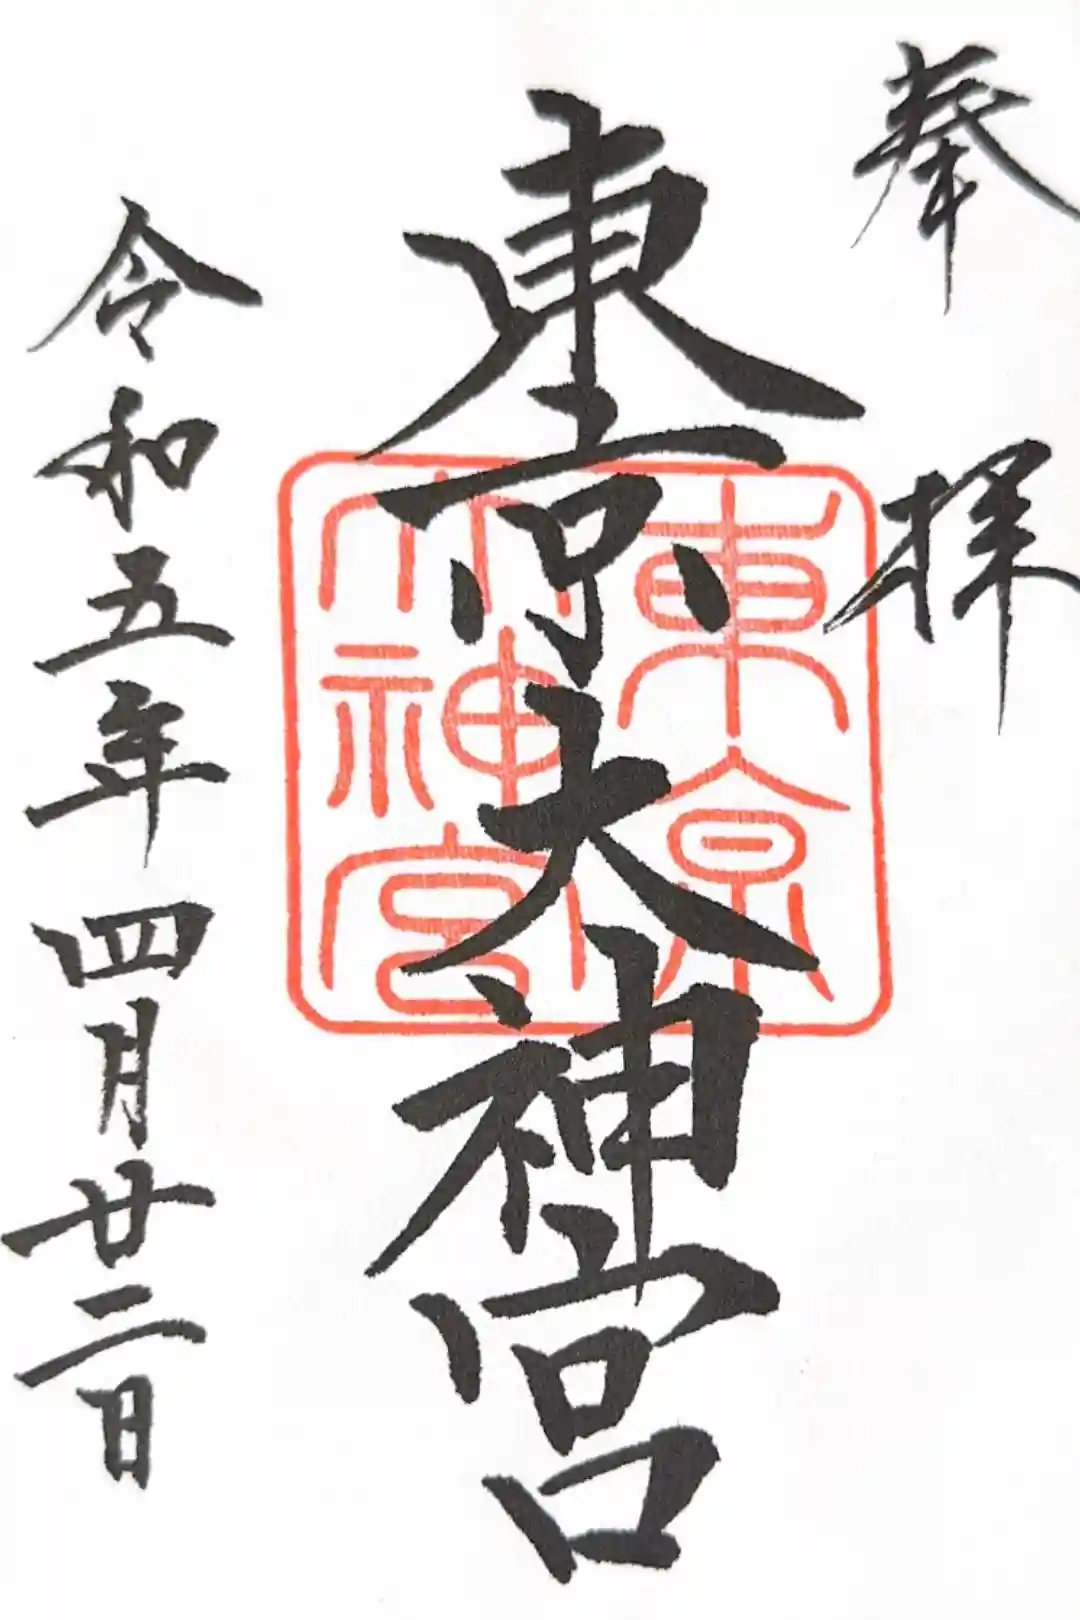 奉拝
東京大神宮
東京大神宮
令和五年四月廿二日